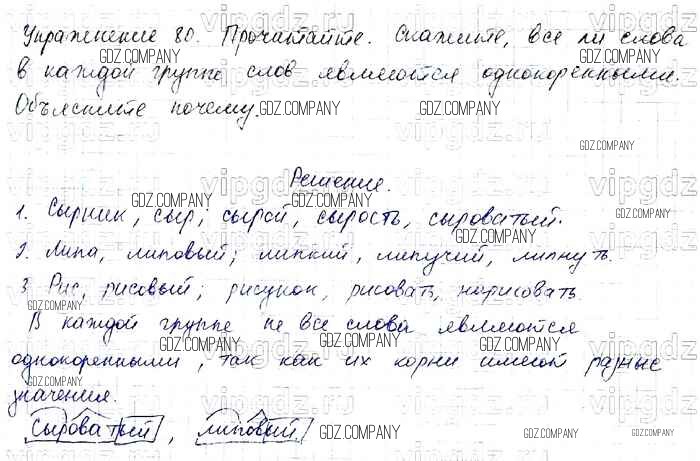 Упражнение 80. Прочитайте. Скажите, все ли слова
в каждой группе слов являются однокоренными.
Объясните почему.
Решение.
1. Сырник, сыр; сырой, сырость, сыроватый.
2. Липа, липовый; липкий, липучий, липнуть.
3. Рис, рисовый; рисунок, рисовать, нарисовать.
В каждой группе не все слова являются
однокоренными, так как их корни имеют разные
значения.
Сыроватый, липовый
GDZ.COMPANY
vipgdz.ru